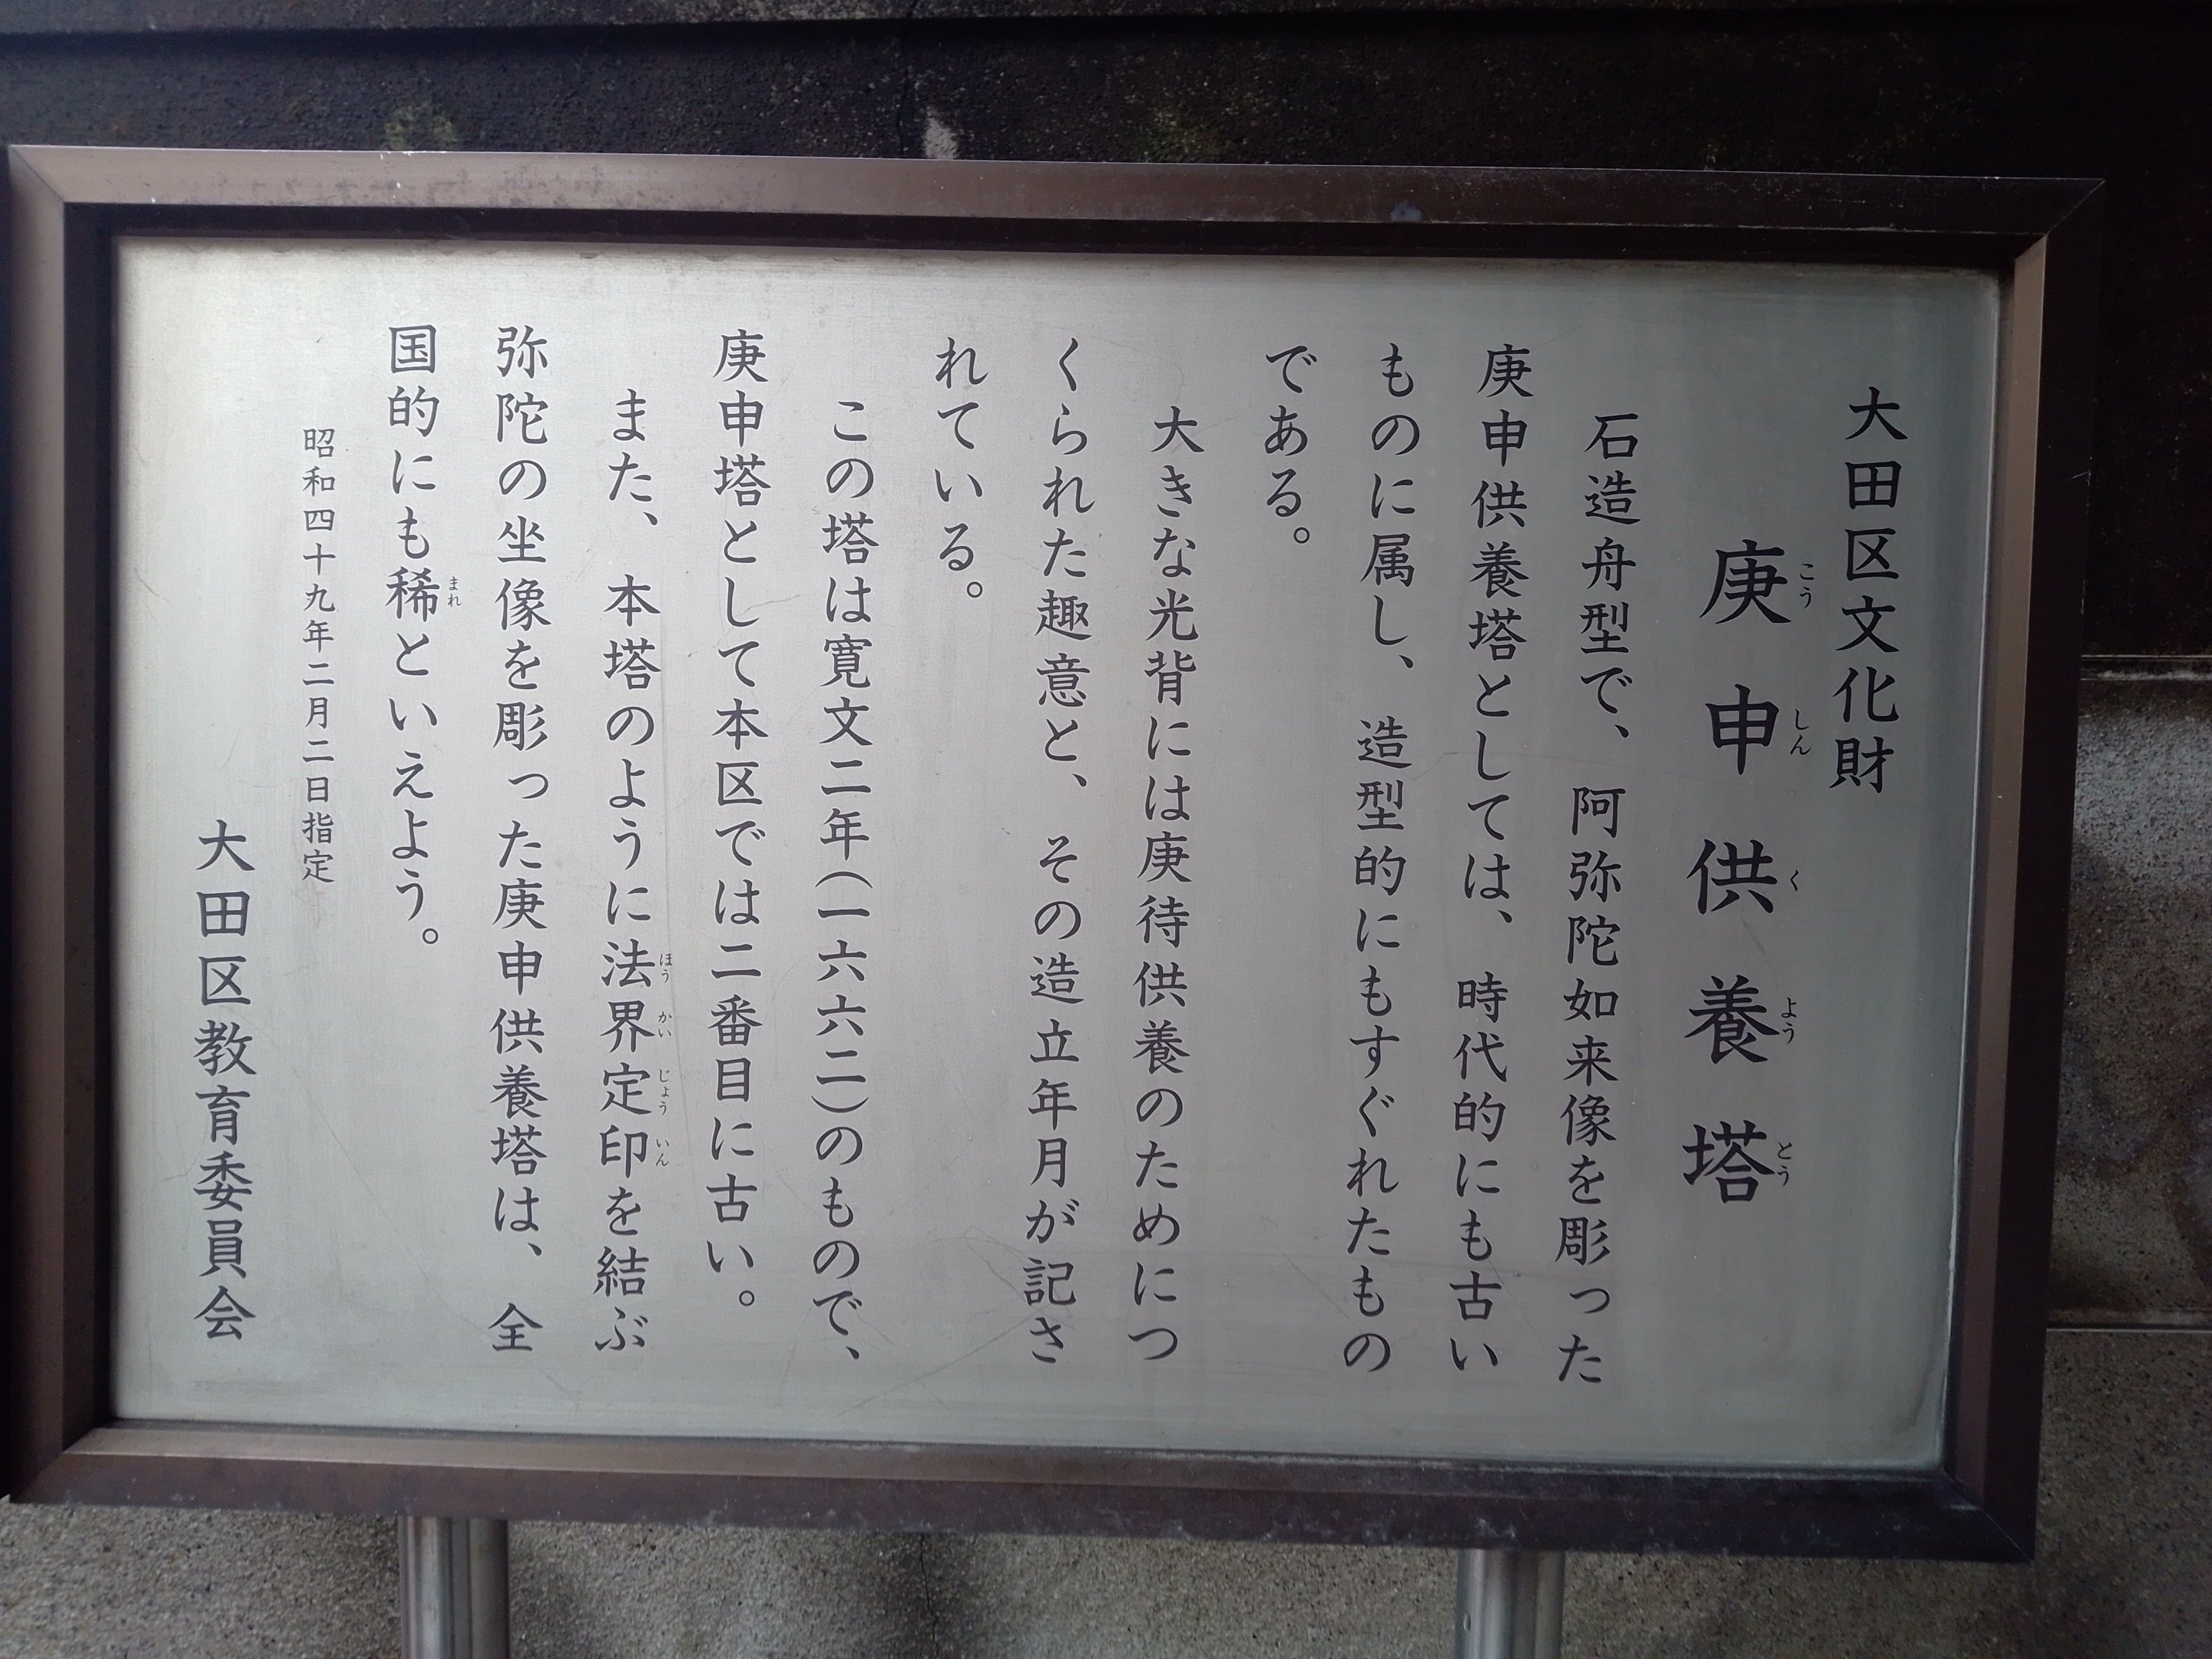 大田区文化財
庚申供養塔
こうしんくようとう
石造舟型で、阿弥陀如来像を彫った
庚申供養塔としては、時代的にも古い
ものに属し、造型的にもすぐれたもの
である。
大きな光背には庚待供養のためにつ
くられた趣意と、その造立年月が記さ
れている。
この塔は寛文二年(一六六二)のもので、
庚申塔として本区では二番目に古い。
また、本塔のように法界定印を結ぶ
ほうかいじょういん
弥陀の坐像を彫った庚申供養塔は、全
国的にも稀といえよう。
まれ
昭和四十九年二月二日指定
大田区教育委員会